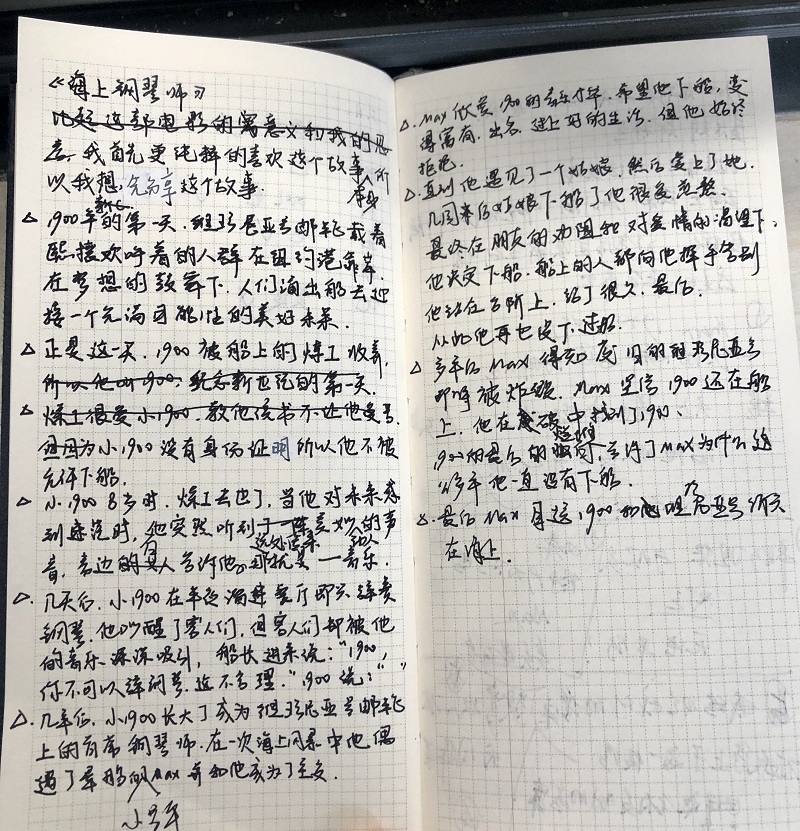 《海上钢琴师》
比起这部电影的寓意义和我的思
考，我首先更纯粹的喜欢这个故事，所
以我想先分享这个故事。
△ 1900年的第一天，维珍尼亚号邮轮载着
熙攘欢呼着的人群在纽约港靠岸，
在梦想的鼓舞下，人们涌出船去迎
接一个充满可能性的美好未来。
△ 正是这一天，1900被船上的煤工收养，
所以他叫1900，纪念新世纪的第一天。
△ 煤工很爱小1900，教他读书不让他受
但因为小1900没有身份证明所以他不被
允许下船。
△ 小1900 8岁时，煤工去世了，当他对未来感
到迷茫时，他突然听到了一阵美妙的声
远处传来 动人
音，旁边的人告诉他，那就是——音乐。
△ 几天后，小1900在半夜溜进餐厅即兴弹奏
钢琴，他吵醒了客人们，但客人们却被他
的音乐深深吸引，船长进来说："1900，
你不可以弹钢琴，这不合理。"1900说：" "
△ 几年后，小1900长大了成为维珍尼亚号邮轮
上的首席钢琴师，在一次海上风暴中他偶
遇了晕船的Max并和他成为了至交。
小号手
△ Max欣赏1900的音乐才华，希望他下船，变
得富有、出名、过上好的生活，但他始终
拒绝。
△ 直到他遇见了一个姑娘，然后爱上了她，
几周来后姑娘下船了他很受煎熬
最终在朋友的劝阻和对爱情的渴望下，
他决定下船。船上的人都向他挥手告别
他站在台阶上，站了很久，最后，
从此他再也没下过船。
△ 多年后Max得知废旧的维珍尼亚号
即将被炸毁，Max坚信1900还在船
上，他在破中找到了1900、
1900的音乐的 告诉了Max为什么这
么多年他一直没有下船。
△ 最后Max目送1900和维珍尼亚号消失
在海上。